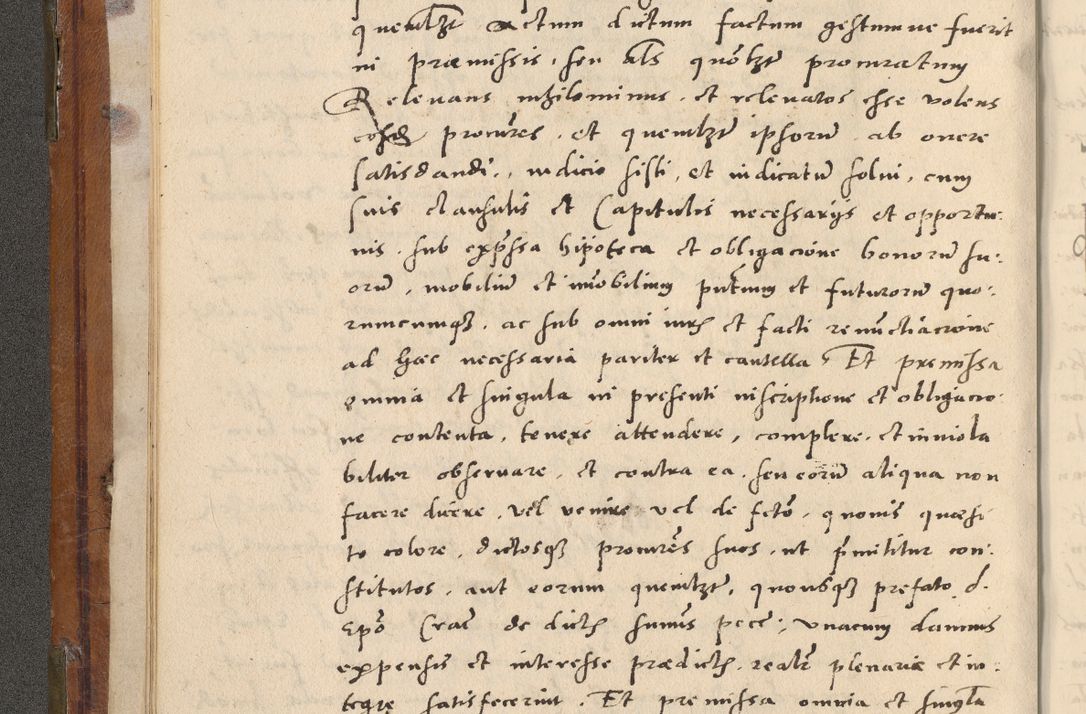 quemlzt actum dictum factum gestumue fuerit
in præmissis, seu als quõlzt procuratum
Releuans nihilominus, et releuatos esse volens
eosd procures, et quemlzt ipsorũ ab onere
satisdandi, iudicio sisti, et iudicatũ solui, cum
suis clausulis et Capitulis necessarijs et opportu:
nis, sub exp̃ssa hipoteca et obligacione bonorũ su:
orũ, mobiliũ et im̃obilium pñtium et futurorũ quo:
rumcumqȝ, ac sub omni iuris et facti renũctiacione
ad hæc necessaria pariter et cautella, Et premissa
omnia et singula in presenti inscriptione et obligacio:
ne contenta, tenere attendere, complere, et inuiola
biliter obseruare, et contra ea, seu eorũ aliqua non
facere dicere, vel venire vel de fctõ, quouis quæsi
to colore, dictosqȝ procures suos, ut p̃mititur con:
stitutos, aut eorum quemlzt, quousqȝ prefato d.
Epõ Crac̃ de dictis summis pecc̃, vnacum damnis
expensis et interesse prædictis, realr̃ plenariæ et in:
tegre satisfecerint, Et premissa omnia et singla